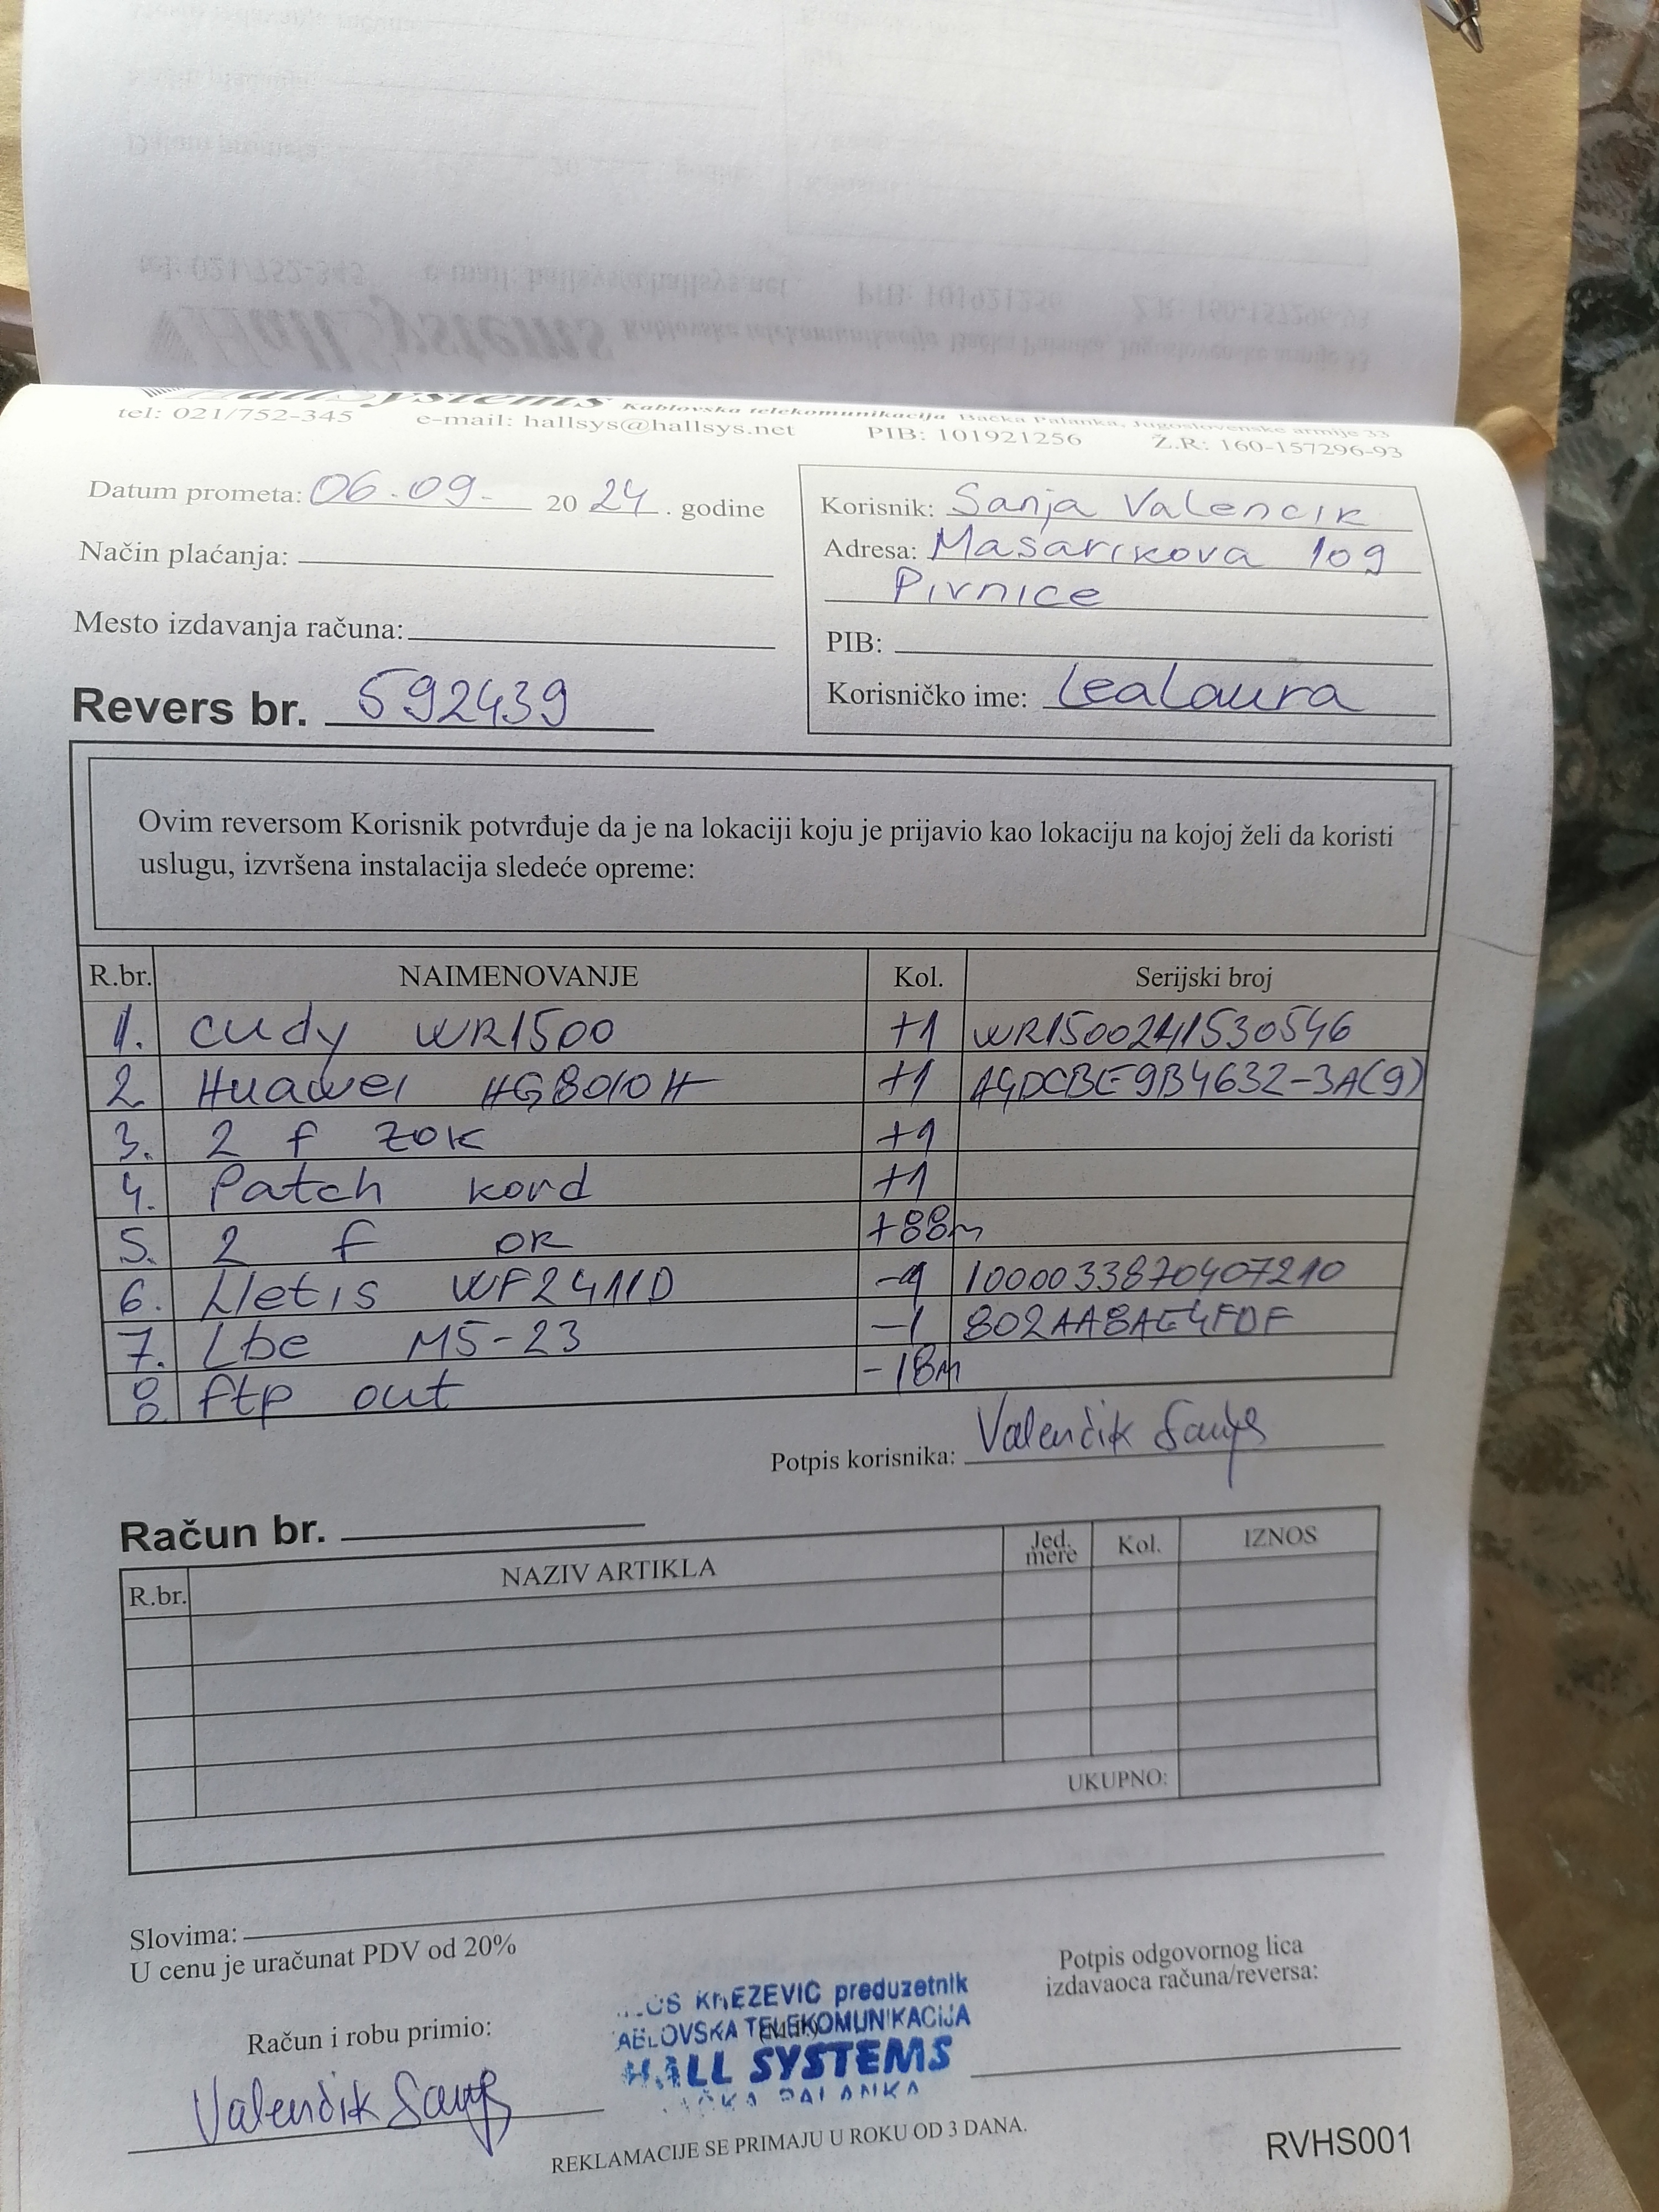 HallSystems Kablovska telekomunikacija Bačka Palanka, Jugoslovenske armije 33
tel: 021/752-345 e-mail: hallsys@hallsys.net PIB: 101921256 Ž.R: 160-157296-93
Datum prometa: 06.09. 20 24. godine
Način plaćanja:
Mesto izdavanja računa:
Korisnik: Sanja Valencik
Adresa: Masarikova 109
Pivnice
PIB:
Korisničko ime: LeaLaura
Revers br. 592439
Ovim reversom Korisnik potvrđuje da je na lokaciji koju je prijavio kao lokaciju na kojoj želi da koristi
uslugu, izvršena instalacija sledeće opreme:
R.br. NAIMENOVANJE Kol. Serijski broj
1. cudy WR1500 +1 WR1500241530546
2. Huawei HG8010H +1 A4DCBE9B4632-3A(9)
3. 2 f ZOK +1
4. Patch kord +1
5. 2 f OK +88m
6. Netis WF2411D -1 1000033870407210
7. Lbe M5-23 -1 802AA8AE4FDF
8. ftp out -18m
Potpis korisnika: Valenčik Sanja
Račun br.
R.br. NAZIV ARTIKLA Jed. mere Kol. IZNOS
UKUPNO:
Slovima:
U cenu je uračunat PDV od 20%
Račun i robu primio:
Valenčik Sanja
KNEZEVIC preduzetnik
ABLOVSKA TELEKOMUNIKACIJA
(M.P.)
HALL SYSTEMS
AČKA PALANKA
Potpis odgovornog lica
izdavaoca računa/reversa:
REKLAMACIJE SE PRIMAJU U ROKU OD 3 DANA.
RVHS001